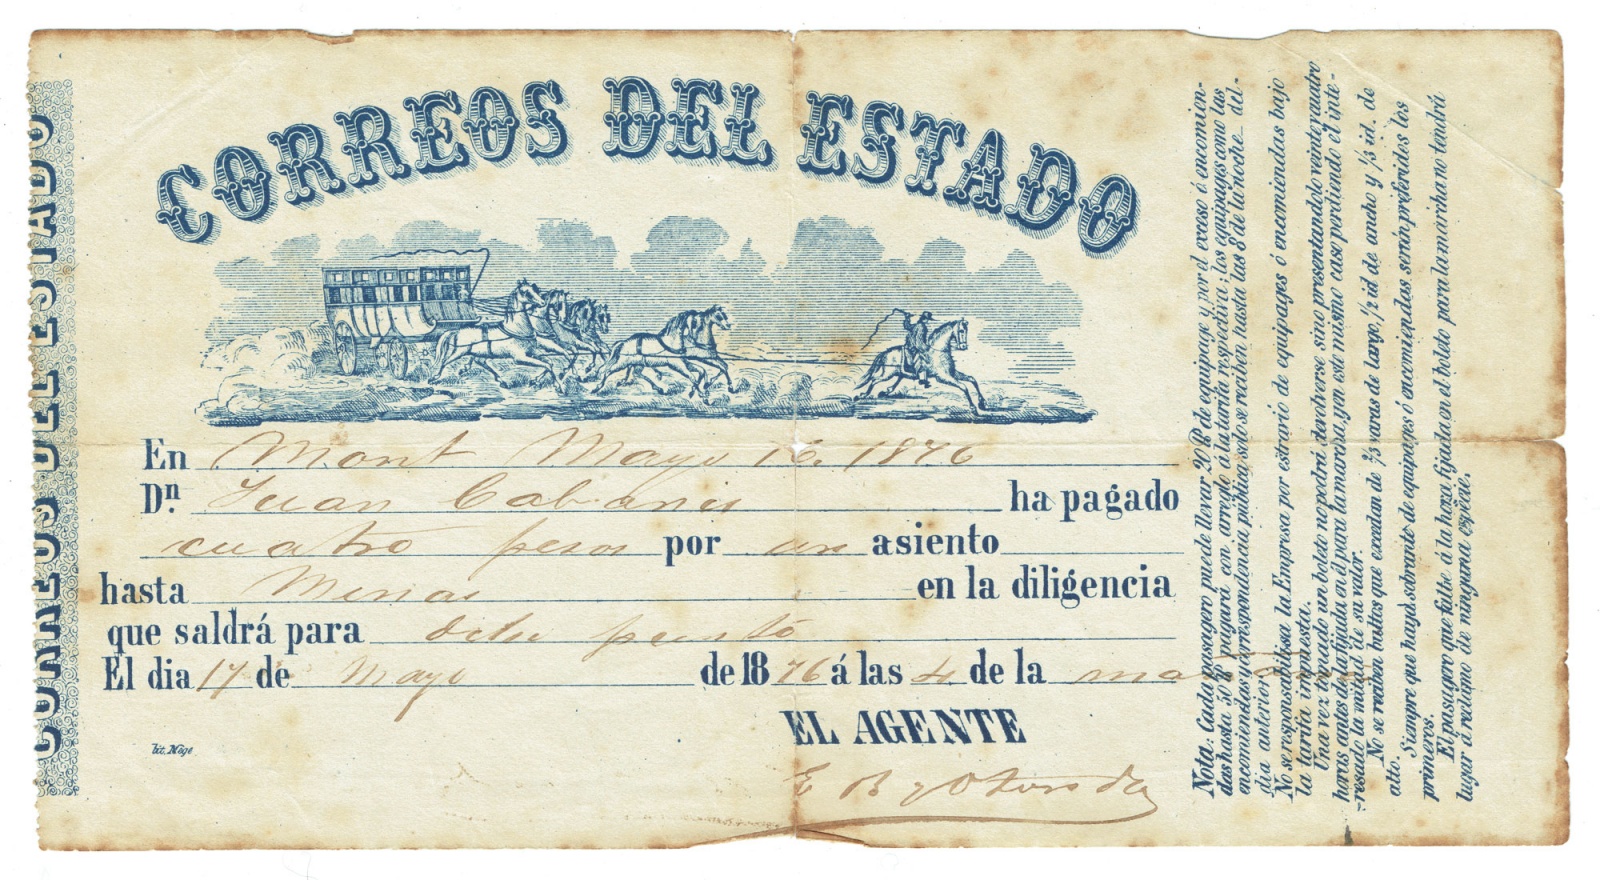 CORREOS DEL ESTADO
CORREOS DEL ESTADO
En Mont Mayo 16 1876
Dn. Juan Cabanis ha pagado
cuatro pesos por un asiento
hasta Minas en la diligencia
que saldrá para dcho punto
El dia 17 de Mayo de 1876 á las 4 de la
EL AGENTE
Lit. Nôge
Nota. Cada pasagero puede llevar 20 lb de equipage y por el exceso ó encomien-
das hasta 50 lb pagará con arreglo á la tarifa respectiva; los equipages como las
encomiendas y correspondencia pública solo se reciben hasta las 8 de la noche del
dia anterior.
No se responsabilisa la Empresa por estravio de equipages ó encomiendas bajo
la tarifa impuesta.
Una vez tomado un boleto no podrá devolverse sino presentando veinte cuatro
horas antes dela fijada en él para la marcha, y en este mismo caso perdiendo el inte-
resado la mitad de su valor.
No se reciben bultos que excedan de ⅔ varas de largo, ½ id de ancho y ⅓ id. de
alto.
Siempre que haya sobrante de equipages ó encomiendas serán preferidos los
primeros.
El pasagero que falte á la hora fijada en el boleto para la marcha no tendrá
lugar á reclamo de ninguna especie.